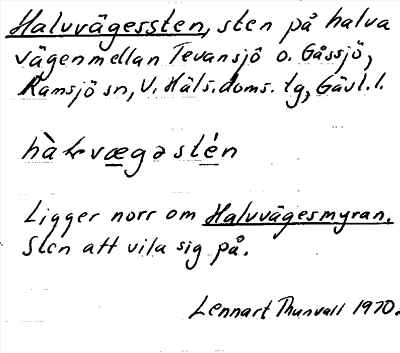 Halvvägessten, sten på halva
vägen mellan Tevansjö o. Gåssjö,
Ramsjö sn, V. Häls. doms. lg, Gävl. l.
Ligger norr om Halvvägesmyran.
Sten att vila sig på.
Lennart Thunvall 1970.